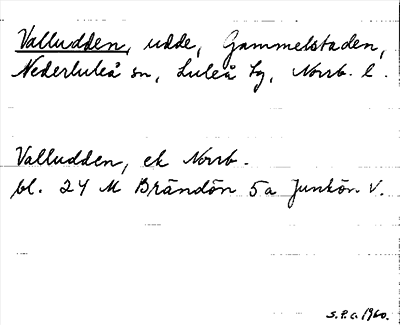 Valludden, udde, Gammelstaden,
Nederluleå sn, Luleå tg, Norrb. l.
Valludden, ek Norrb.
bl. 24 M Brändön 5a Junkön. V.
S.P.G. 1960.